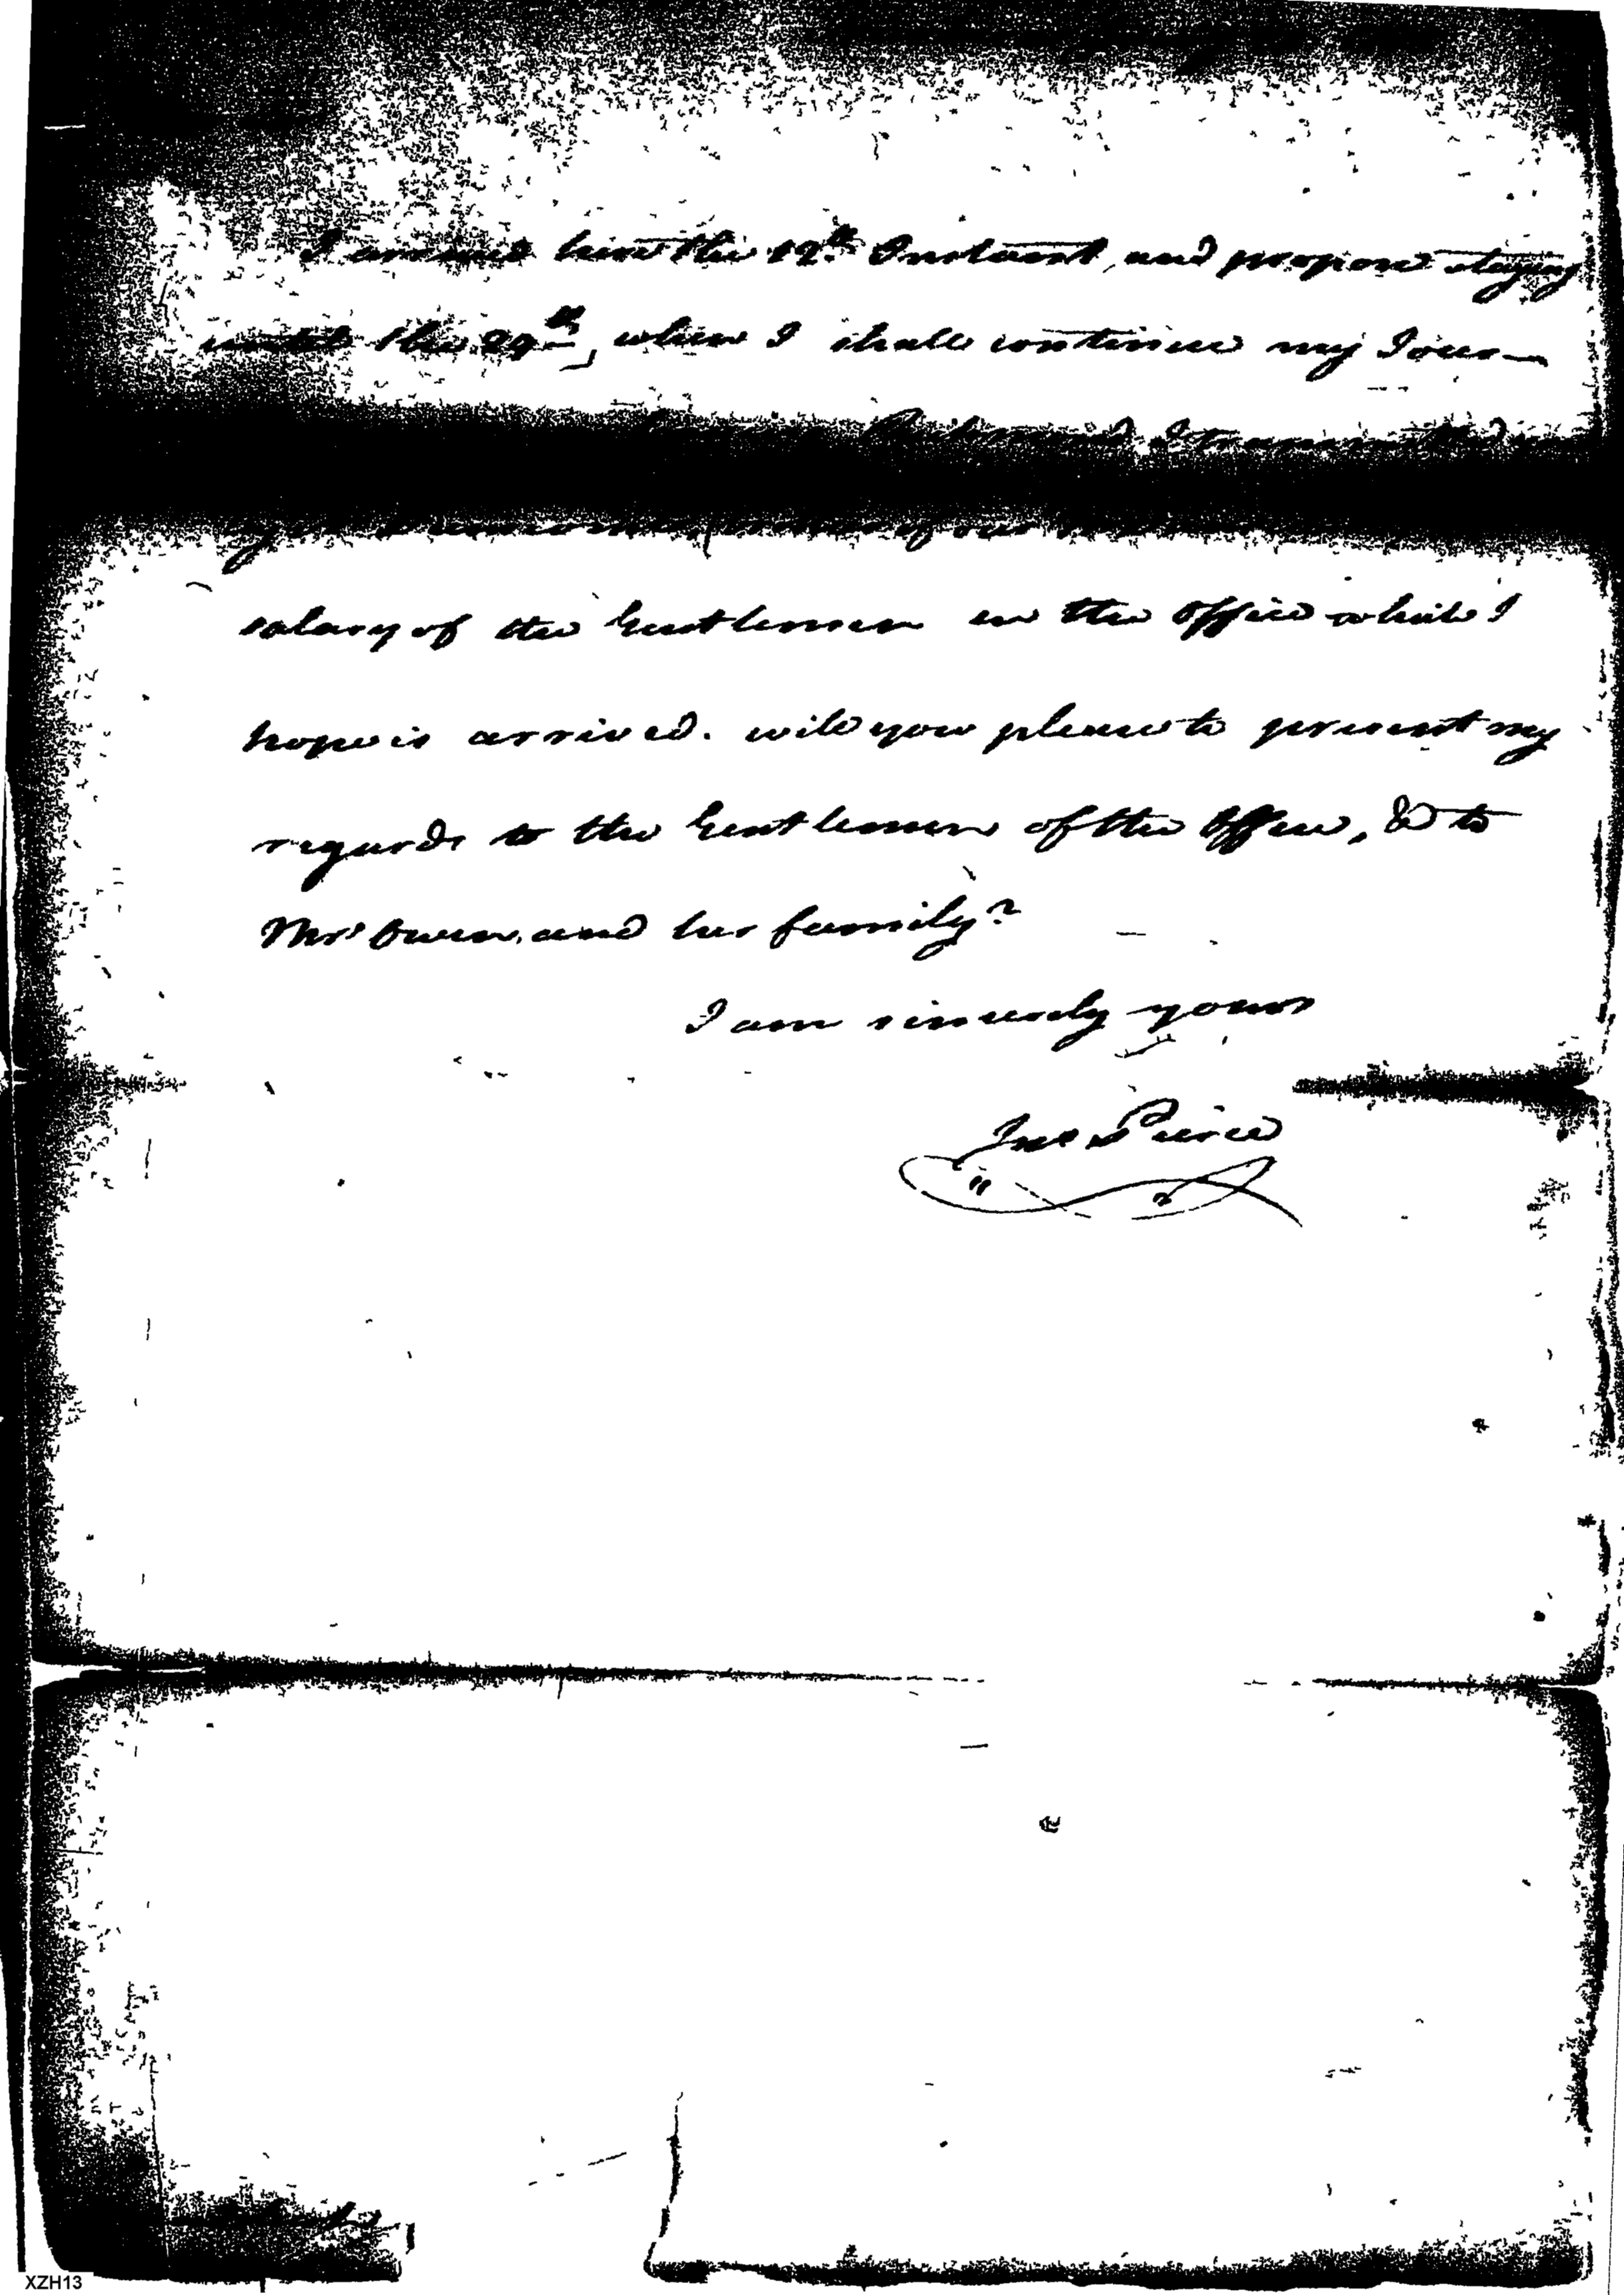 I arrived here the 12th Instant, and propose staying
until the 29th, when I shall continue my Jour-
Richmond I transmitted
of our
salary of the Gentlemen in the Office which I
hope is arrived. will you please to present my
regards to the Gentlemen of the Office, & to
Mrs Owen, and her family?
I am sincerely yours
Jno Pierce
XZH13